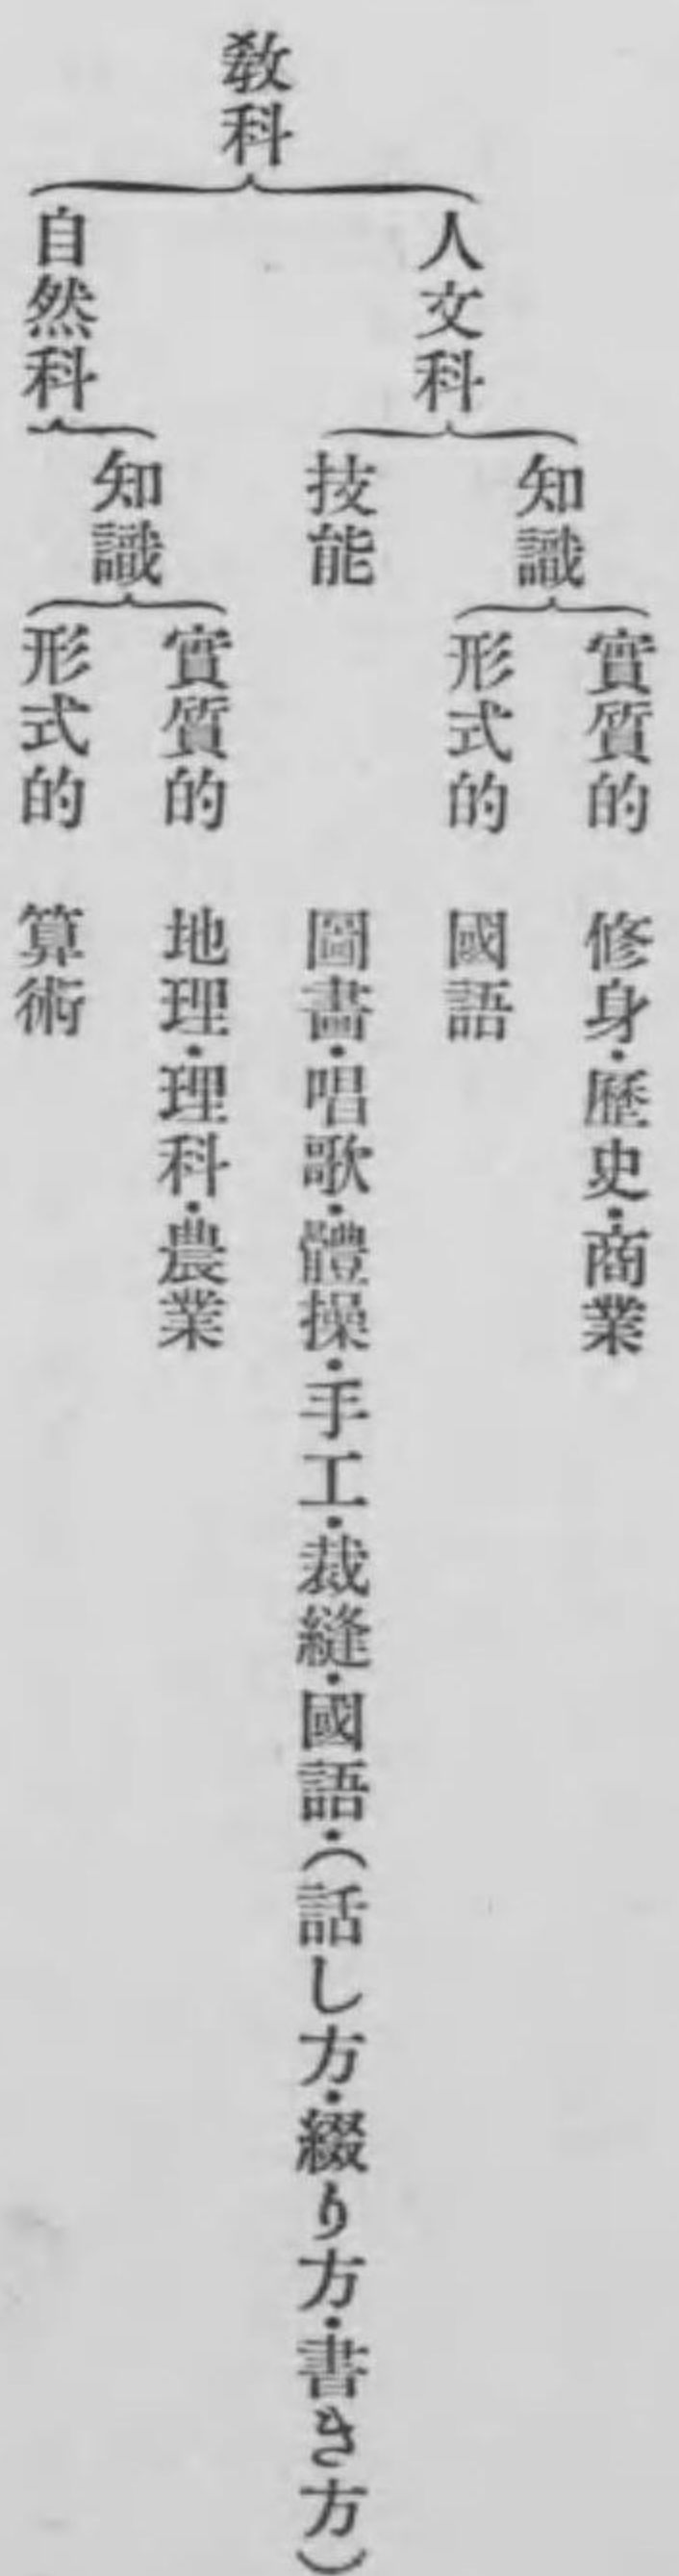 教科
人文科
知識
實質的 修身・歷史・商業
形式的 國語
技能 圖畫・唱歌・體操・手工・裁縫・國語・(話し方・綴り方・書き方)
自然科
知識
實質的 地理・理科・農業
形式的 算術